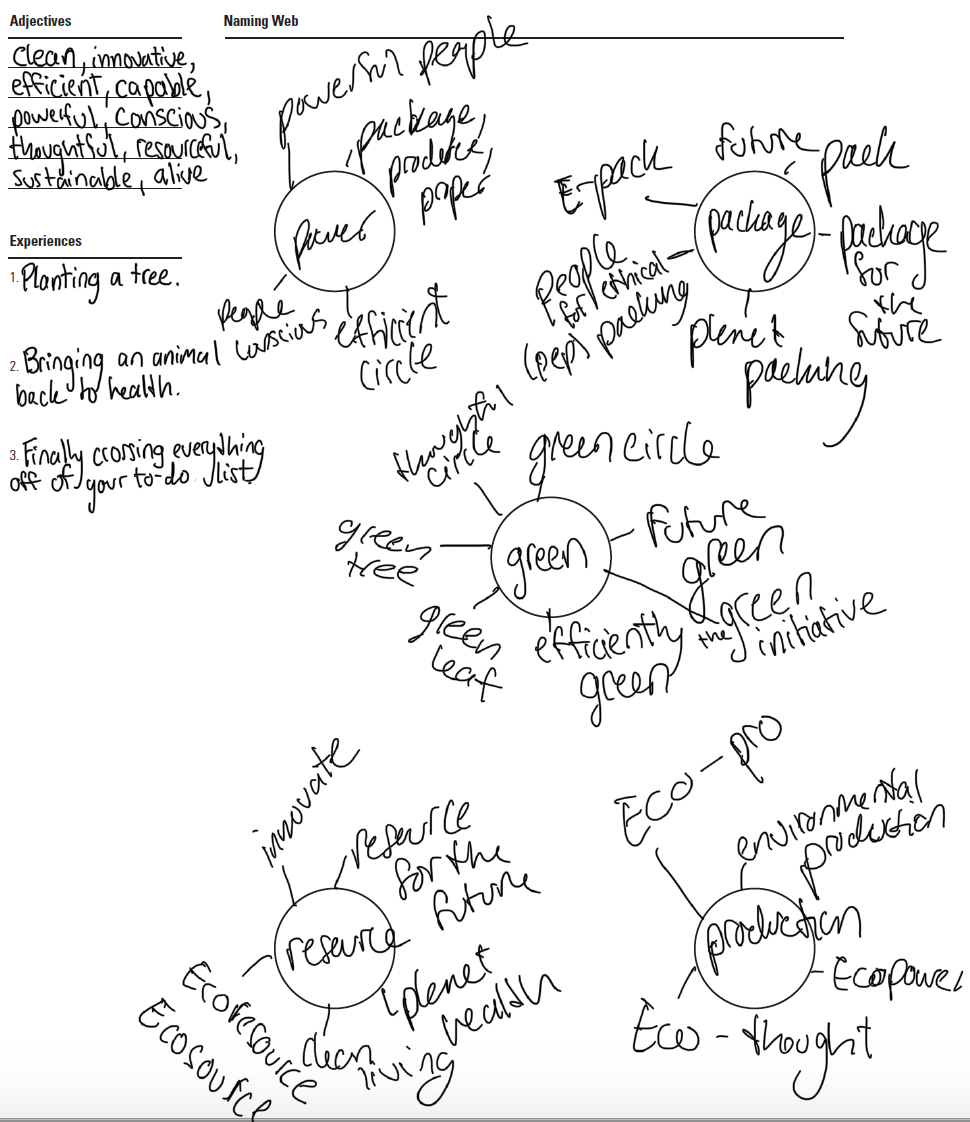 Adjectives
clean, innovative,
efficient, capable,
powerful, conscious,
thoughtful, resourceful,
sustainable, alive
Experiences
1. Planting a tree.
2. Bringing an animal
back to health.
3. Finally crossing everything
off of your to-do list
Naming Web
power
powerful people
package,
produce,
paper
people
conscious
efficient
circle
package
E-pack
future pack
package
for
the
future
planet
packing
people
for ethical
(pep) packing
green
thoughtful
circle
green circle
future
green
the green
initiative
efficiently
green
green
leaf
green
tree
resource
innovate
resource
for the
future
planet
health
clean
living
Ecoresource
Ecosource
production
Eco-pro
environmental
production
Ecopower
Eco-thought